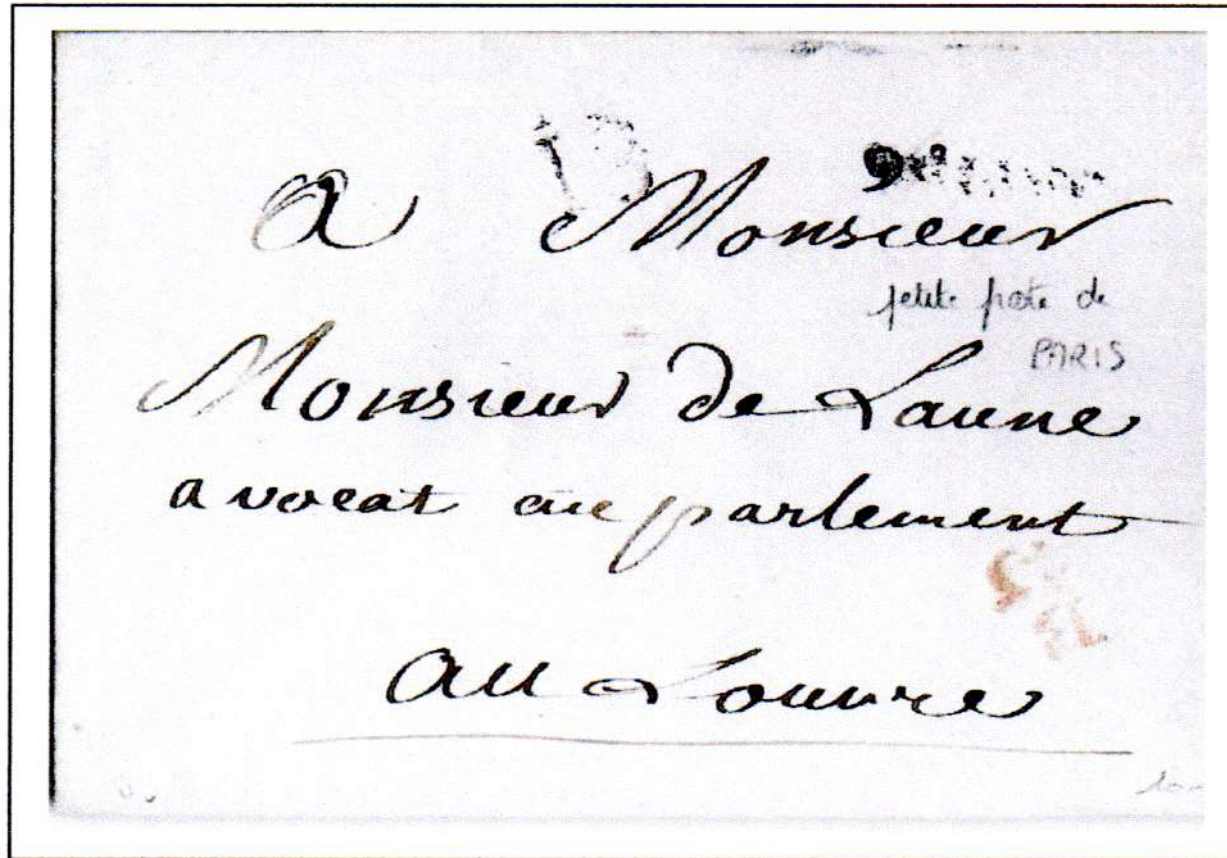 A Monsieur
petite poste de
PARIS
Monsieur de Laune
avocat au parlement
au Louvre